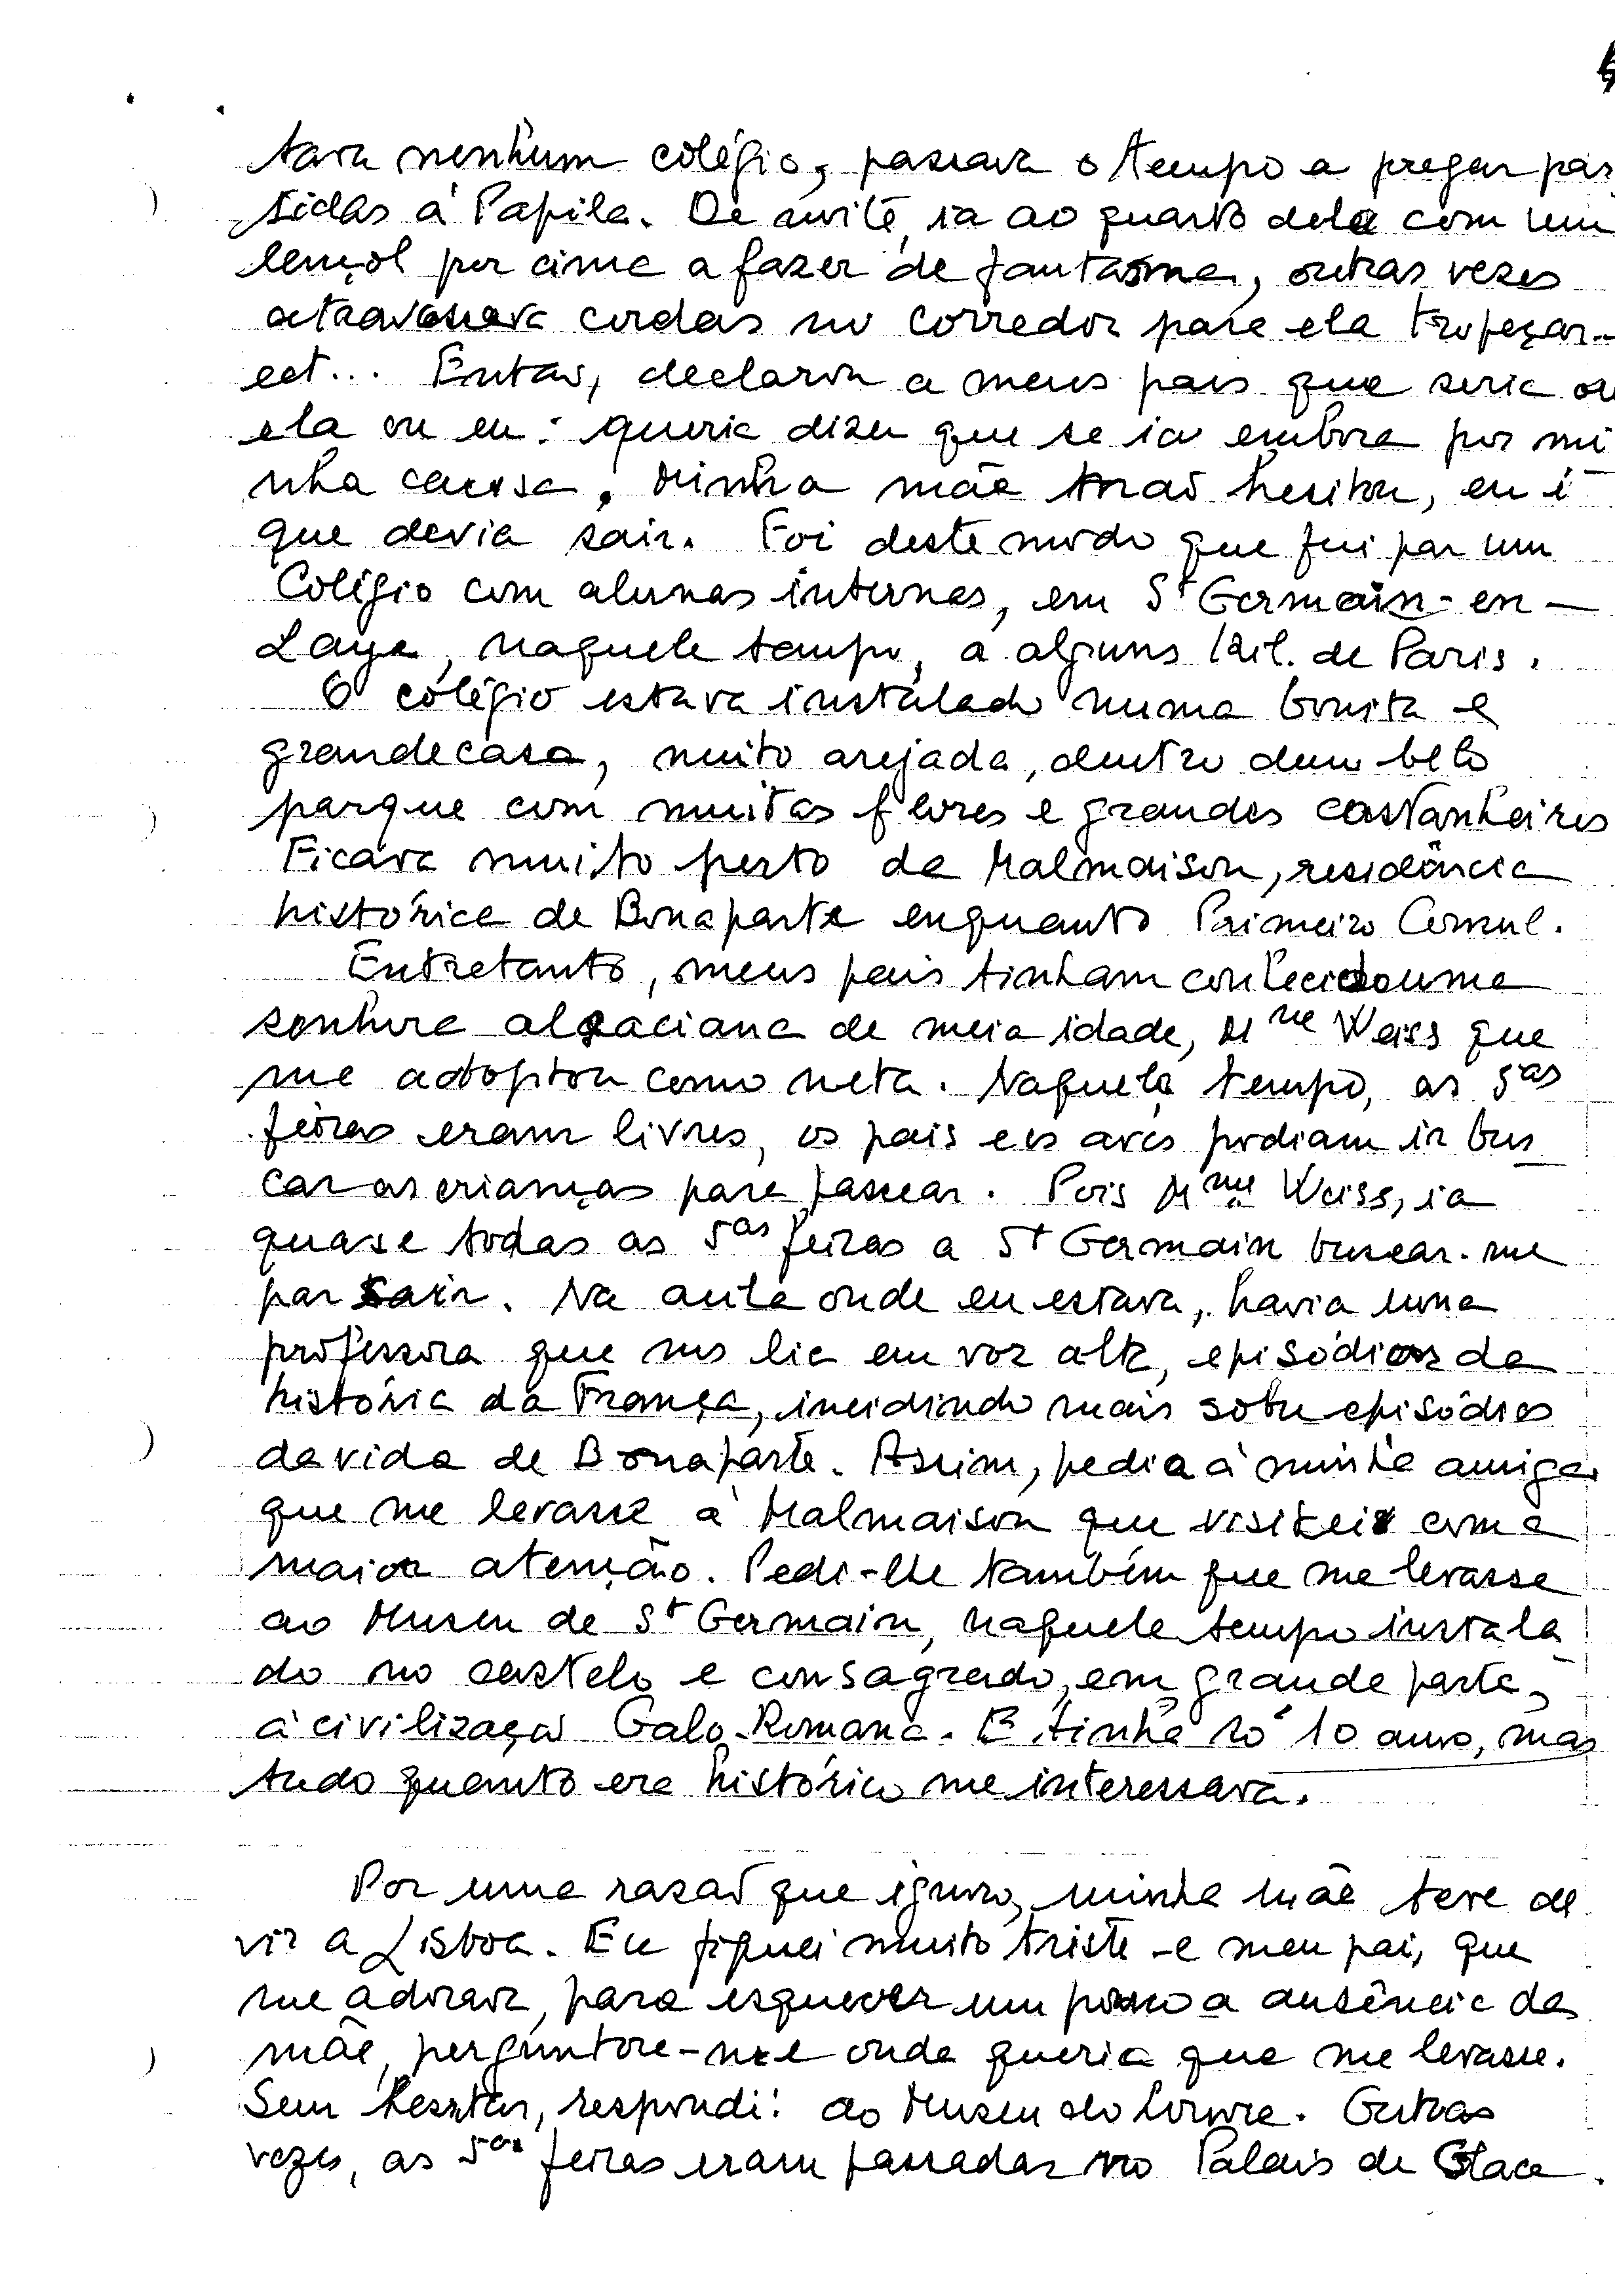 tava nenhum colégio, passava o tempo a pregar par
tidas à Papila. De noite, ia ao quarto dela com um
lençol por cima a fazer de fantasma, outras vezes
atravessava cordas no corredor para ela tropeçar..
ect... Então, declarou a meus pais que seria ou
ela ou eu: queria dizer que se ia embora por mi
nha causa. Minha mãe não hesitou, eu é
que devia sair. Foi deste modo que fui par um
Colégio com alunas internas, em St Germain-en-
Laye, naquele tempo, a alguns Kil. de Paris.
O colégio estava instalado numa bonita e
grande casa, muito arejada, dentro dum belo
parque com muitas flores e grandes castanheiros
Ficava muito perto da Malmaison, residência
histórica de Bonaparte enquanto Primeiro Consul.
Entretanto, meus pais tinham conhecido uma
senhora alsaciana de meia idade, Mme Weiss que
me adoptou como neta. Naquele tempo, as 5as
feiras eram livres, os pais e os avós podiam ir bus
car as crianças para passear. Pois Mme Weiss, ia
quase todas as 5as feiras a St Germain buscar-me
par sair. Na aula onde eu estava, havia uma
professora que nos lia em voz alta, episódios da
história da França, incidindo mais sobre episódios
da vida de Bonaparte. Assim, pedia à minha amiga
que me levasse à Malmaison que visitei com a
maior atenção. Pedi-lhe também que me levasse
ao Museu de St Germain, naquele tempo instala
do no castelo e consagrado, em grande parte,
à civilização Galo-Romana. E tinha só 10 anos, mas
tudo quanto era histórico me interessava.
Por uma razão que ignoro, minha mãe teve de
vir a Lisboa. Eu fiquei muito triste - e meu pai, que
me adorava, para esquecer um pouco a ausência da
mãe, perguntou-me onde queria que me levasse.
Sem hesitar, respondi: ao Museu do Louvre. Outras
vezes, as 5as feiras eram passadas no Palais de Glace.